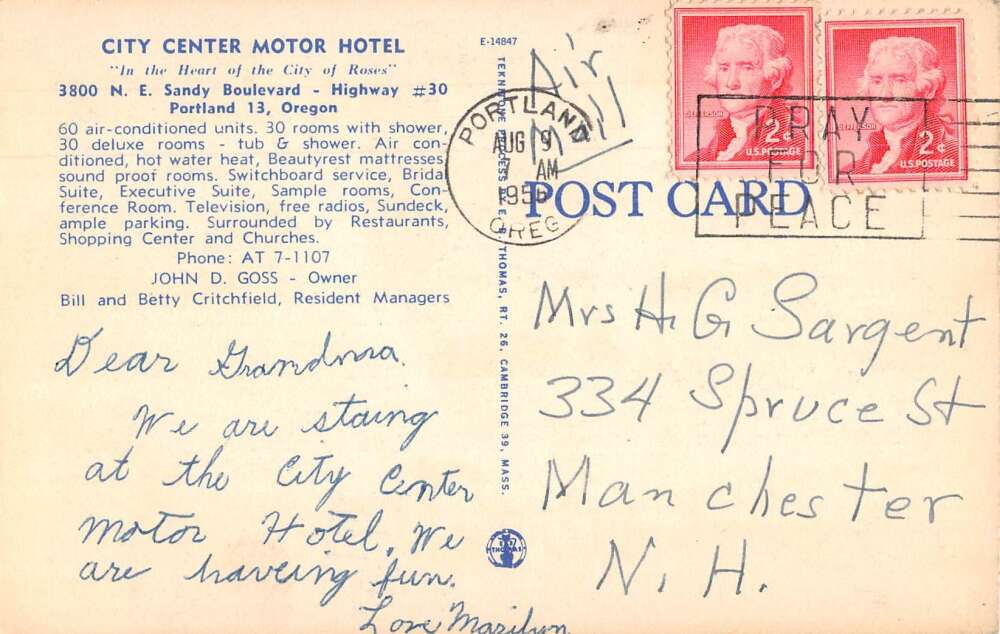 CITY CENTER MOTOR HOTEL
"In the Heart of the City of Roses"
3800 N. E. Sandy Boulevard - Highway #30
Portland 13, Oregon
60 air-conditioned units. 30 rooms with shower,
30 deluxe rooms - tub & shower. Air con-
ditioned, hot water heat, Beautyrest mattresses
sound proof rooms. Switchboard service, Bridal
Suite, Executive Suite, Sample rooms, Con-
ference Room. Television, free radios, Sundeck,
ample parking. Surrounded by Restaurants,
Shopping Center and Churches.
Phone: AT 7-1107
JOHN D. GOSS - Owner
Bill and Betty Critchfield, Resident Managers
Dear Grandma.
We are staing
at the City Center
Motor Hotel. We
are haveing fun.
Love Marilyn
E-14847
THOMAS, RT. 26, CAMBRIDGE 39, MASS.
THOMAS
Air
Mail
PORTLAND
AUG 9
7 AM
OREG
POST CARD
JEFFERSON
2¢
U.S. POSTAGE
JEFFERSON
2¢
U.S. POSTAGE
PRAY
FOR
PEACE
Mrs H. G Sargent
334 Spruce St
Manchester
N. H.